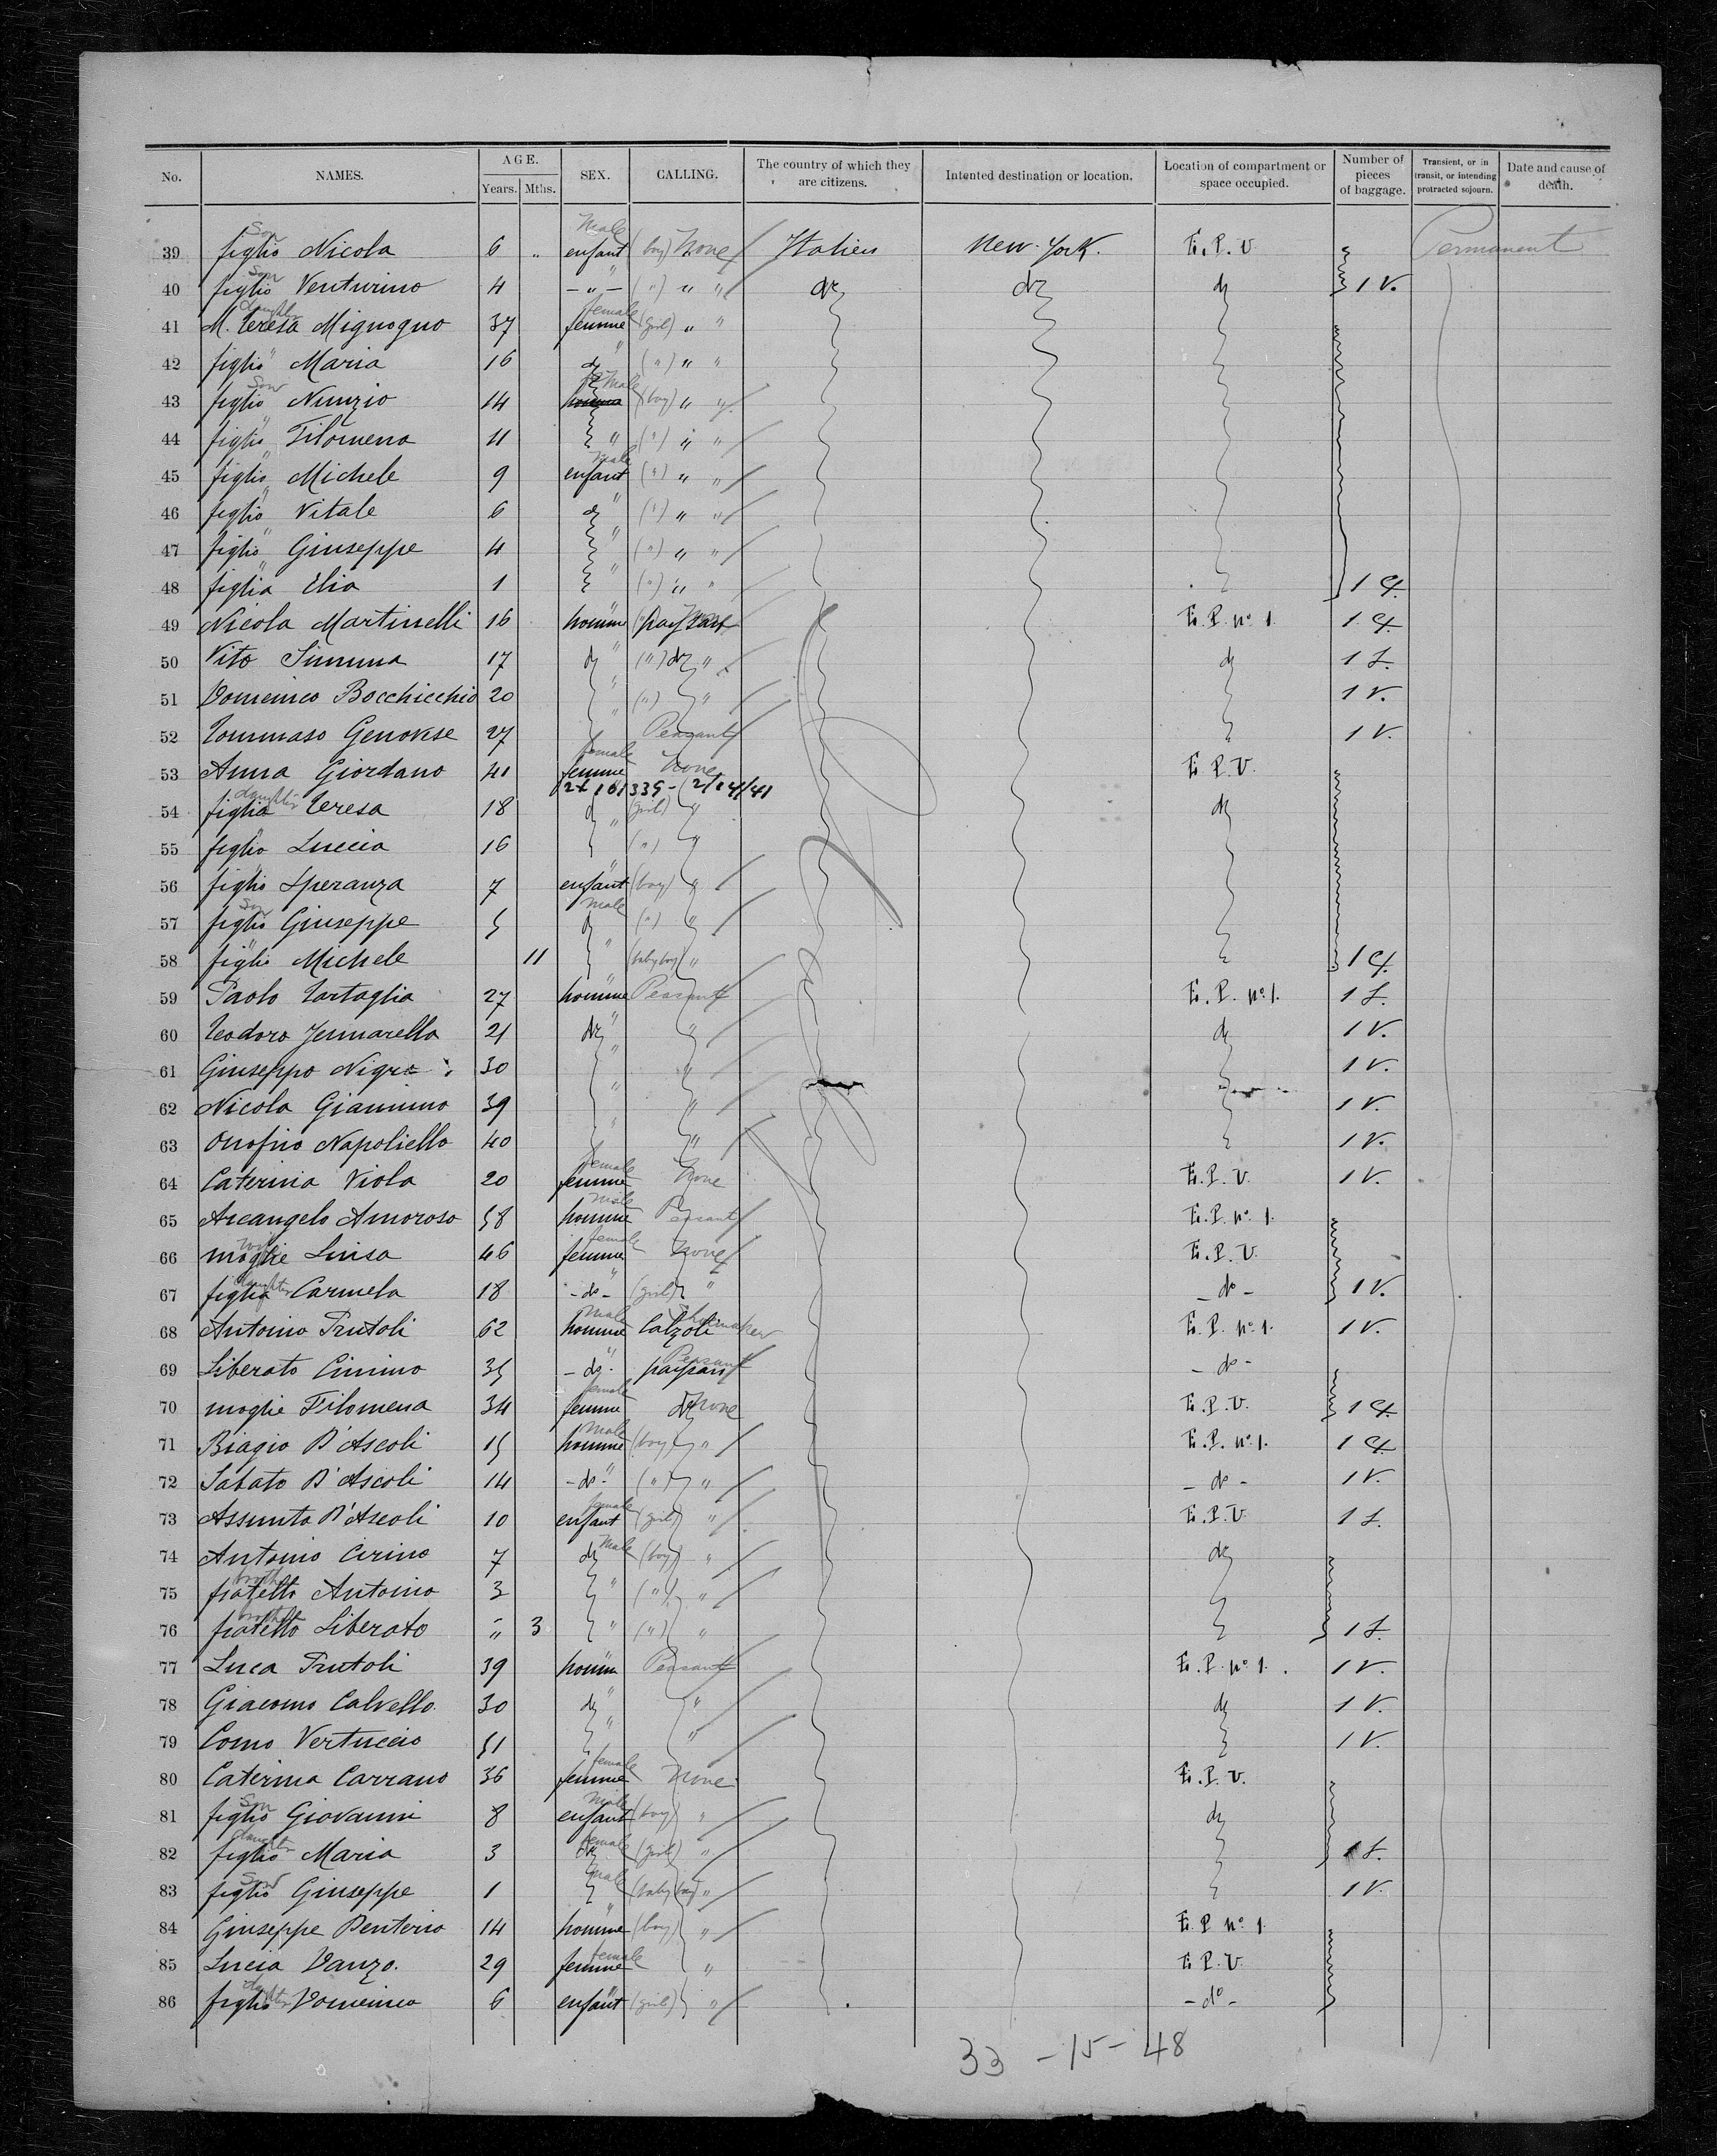 No. NAMES. AGE. Years. Mths. SEX. CALLING. The country of which they are citizens. Intented destination or location. Location of compartment or space occupied. Number of pieces of baggage. Transient, or in transit, or intending protracted sojourn. Date and cause of death.
39 figlio Son Nicola 6 " enfant Male (boy) None Italien New-York. E. P. V Permanent
40 figlio Son Venturino 4 - " - (") " " do do do 1 V.
41 M. Teresa Mignogno daughter 37 femme female (girl) " "
42 figlio " Maria 16 do " (") " "
43 figlio Son Nunzio 14 homme Male (boy) " "
44 figlio " Filomena 11 " (") " "
45 figlio " Michele 9 enfant male (") " "
46 figlio " Vitale 6 do " (") " "
47 figlio " Giuseppe 4 " (") " "
48 figlia " Elia 1 " (") " " 1 C.
49 Nicola Martinelli 16 homme " E. P. No 1. 1 C.
50 Vito Summa 17 do " (") do " do 1 S.
51 Domenico Bocchicchio 20 " (") " 1 V.
52 Tommaso Genovese 27 " Peasant 1 V.
53 Anna Giordano 41 femme female None E P. V.
2/14/41
54 figlia daughter Teresa 18 do " (girl) " do
55 figlia " Luccia 16 (") "
56 figlio " Speranza 7 enfant " (boy) "
57 figlio Son Giuseppe 5 do male (") "
58 figlio " Michele 11 " (baby boy) " 1 C.
59 Paolo Tartaglia 27 homme " Peasant E. P. No 1. 1 S.
60 Teodoro Jennarella 21 do " " do 1 V.
61 Giuseppe Nigro 30 " " 1 V.
62 Nicola Giannino 39 " " 1 V.
63 Onofrio Napoliello 40 " " 1 V.
64 Caterina Viola 20 femme female None E. P. V. 1 V.
65 Arcangelo Amoroso 58 homme male Peasant E. P. No 1.
66 moglie Luisa 46 femme female None E. P. V.
67 figlia daughter Carmela 18 - do - " (girl) " - do - 1 V.
68 Antonio Trutoli 62 homme Male Calzoli Shoemaker E. P. No 1. 1 V.
69 Liberato Cimino 35 - do - " paysan Peasant - do -
70 moglie Filomena 34 femme female do None E. P. V. 1 C.
71 Biagio D'Ascoli 15 homme Male (boy) " E. P. No 1. 1 C.
72 Sabato D'Ascoli 14 - do - " (") " - do - 1 V.
73 Assunta D'Ascoli 10 enfant female (girl) " E. P. V 1 S.
74 Antonio Cirino 7 do Male (boy) " do
75 fratello brother Antonino 3 " (") "
76 fratello brother Liberato " 3 " (") " 1 S.
77 Luca Trutoli 39 homme " Peasant E. P. No 1. 1 V.
78 Giacomo Calvello 30 do " " do 1 V.
79 Cono Vertuccio 51 " " 1 V.
80 Caterina Carrano 36 femme female None E. P. V.
81 figlio Son Giovanni 8 enfant Male (boy) " do
82 figlia daughter Maria 3 do female (girl) " 1 S.
83 figlio Son Giuseppe 1 male (baby boy) " 1 V.
84 Giuseppe Penterio 14 homme " (boy) " E. P. No 1.
85 Lucia Vanzo. 29 femme female " E P. V.
86 figlia daughter Domenica 6 enfant " (girl) " - do -
33 - 15 - 48